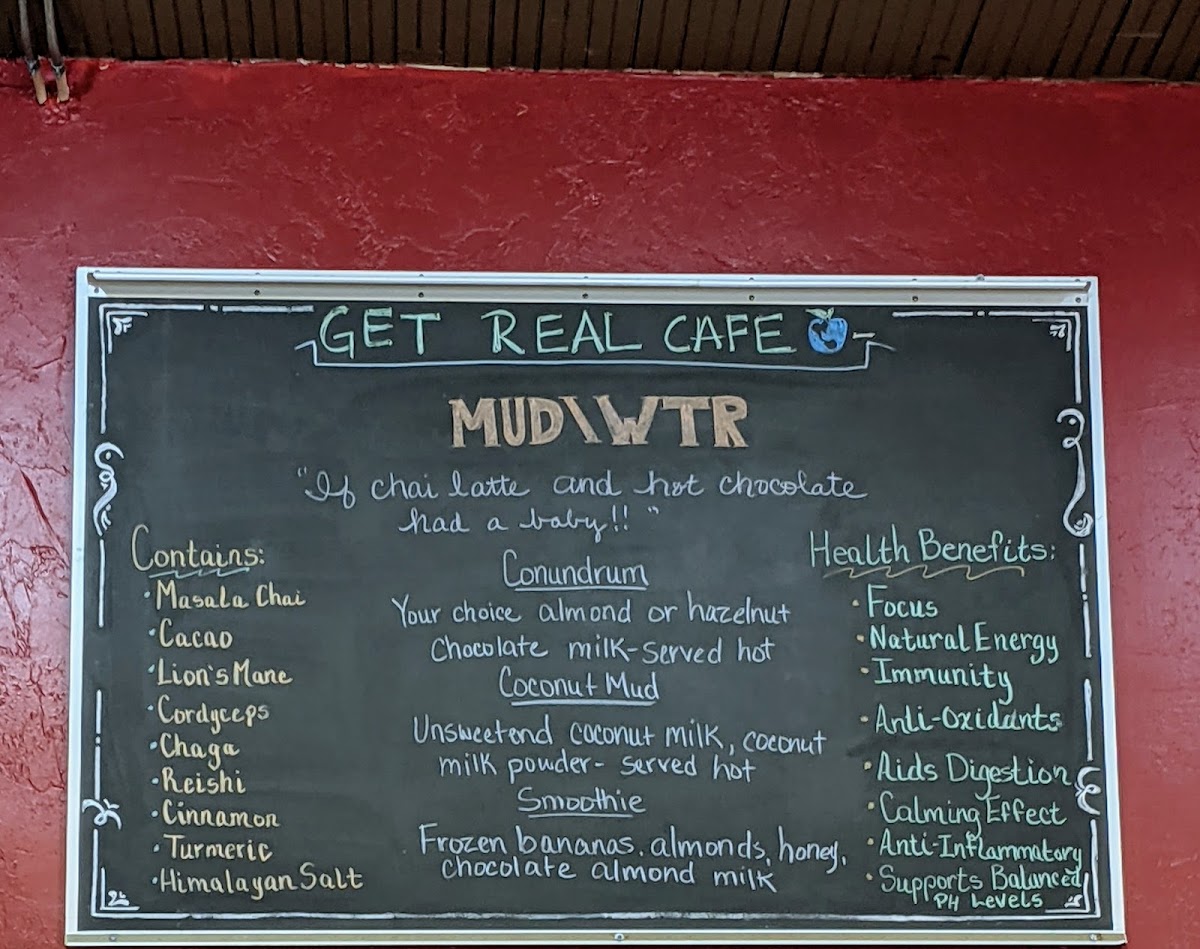 GET REAL CAFE
MUD\WTR
"If chai latte and hot chocolate
had a baby!! "
Contains:
· Masala Chai
· Cacao
· Lion's Mane
· Cordyceps
· Chaga
· Reishi
· Cinnamon
· Turmeric
· Himalayan Salt
Conundrum
Your choice almond or hazelnut
Chocolate milk-served hot
Coconut Mud
Unsweetend coconut milk, coconut
milk powder- served hot
Smoothie
Frozen bananas, almonds, honey,
chocolate almond milk
Health Benefits:
· Focus
· Natural Energy
· Immunity
· Anti-Oxidants
· Aids Digestion
· Calming Effect
· Anti-Inflammatory
· Supports Balanced
PH Levels